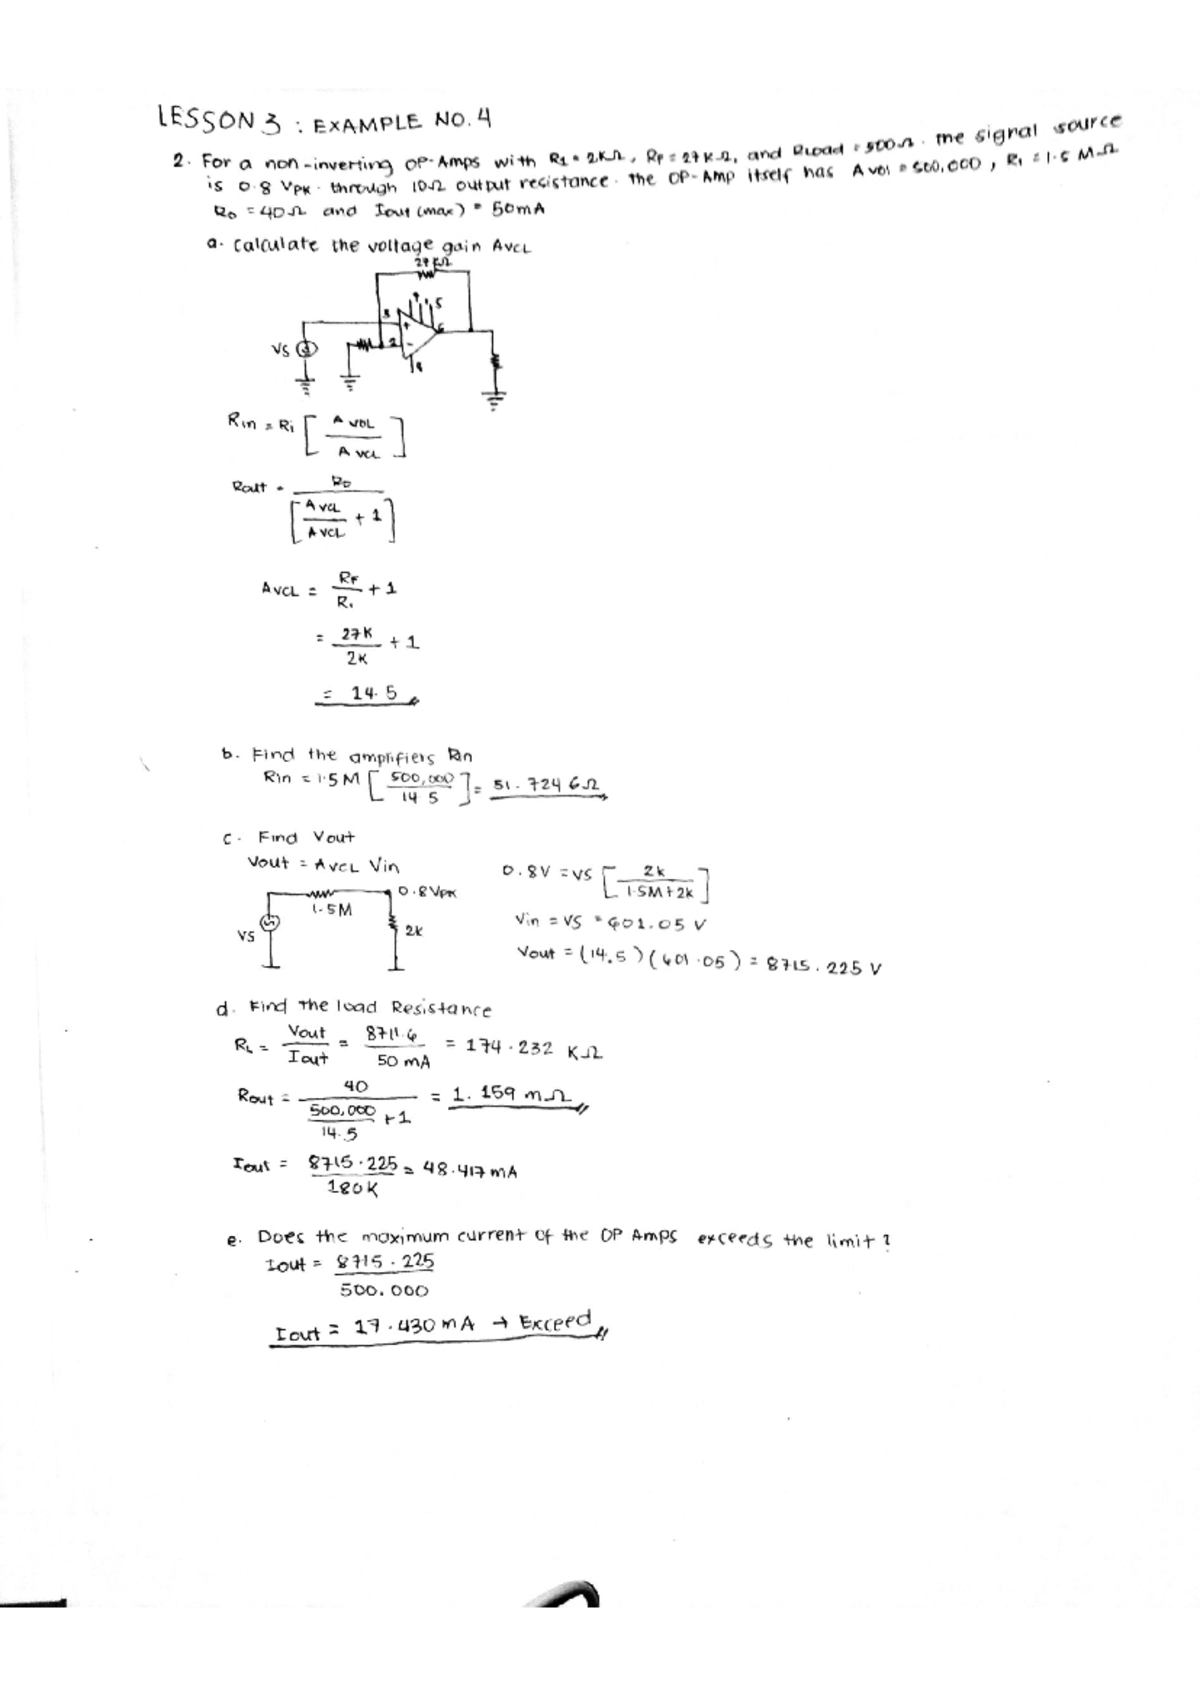 LESSON 3 : EXAMPLE NO. 4
2. For a non-inverting OP-Amps with R1 = 2KΩ, RF = 27KΩ, and Rload = 500Ω. The signal source
is 0.8 VPK. through 10Ω output resistance. The OP-Amp itself has AVOL = 500,000, Ri = 1.5 MΩ
Ro = 40Ω and Iout (max) = 50mA
a. Calculate the voltage gain AVCL
27 KΩ
3
5
+
6
VS
2
-
Rin = Ri [ AVOL / AVCL ]
Rout = Ro / [ AVCL / AVCL + 1 ]
AVCL = RF / R1 + 1
= 27K / 2K + 1
= 14.5
b. Find the amplifiers Rin
Rin = 1.5M [ 500,000 / 14.5 ] = 51.724 GΩ
c. Find Vout
Vout = AVCL Vin
0.8V = VS [ 2k / 1.5M + 2k ]
0.8VPK
1.5M
VS
2K
Vin = VS = 601.05 V
Vout = (14.5)(601.05) = 8715.225 V
d. Find the load Resistance
RL = Vout / Iout = 8711.6 / 50 mA = 174.232 KΩ
Rout = 40 / 500,000 / 14.5 + 1 = 1.159 mΩ
Iout = 8715.225 / 180K = 48.417 mA
e. Does the maximum current of the OP Amps exceeds the limit?
Iout = 8715.225 / 500.000
Iout = 17.430 mA → Exceed